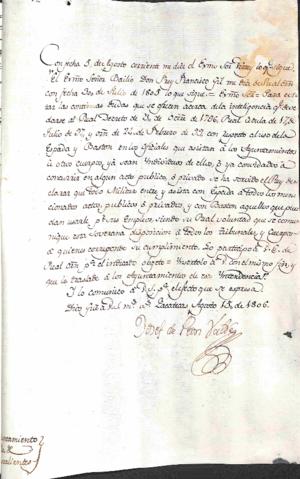 Con fecha 5, de Agosto corriente me dice el Exmo Sor Virrey lo que sigue
el Exmo Señor Bailio Don Frey Francisco Gil me dice de Real orn
con fecha 30 de Julio de 1803 lo que sigue = Exmo Sor = Para evi
tar las continuas dudas que se ofrecen acerca de la inteligencia q
darse al Real Decreto de de 1786, Real Cedula de 17 de
Julio de y orn de 24 de Febrero de con respeto al uso de la
Espada y Baston en los oficiales que asistan a los Ayuntamientos
u otro cuerpo, ya sean Individuos de ellos, o ya convidados a
concurrir en algun acto publico o privado se ha servido el Rey de
clarar que todo Militar entre y asista con Espada a todos los men
cionados actos, publicos o privados, y con Baston aquellos que pue
dan usarle pr sus Empleos, siendo su Real voluntad que se comu
nique esta Soberana disposicion a todos los Tribunales, y Cuerpos
a quienes corresponde su cumplimiento. Lo participo a V. E. de
Real orn pa el indicado objeto = Insertolo a V. con el mismo fin y
que lo traslade a los Ayuntamientos de esa Intendencia.
Y lo comunico a V. S. pa el efecto que se expresa.
Dios gue a V. S. ms as Zacatecas Agosto 13, de 1806.
Josef de Peon Valdes
untamiento
de
calientes